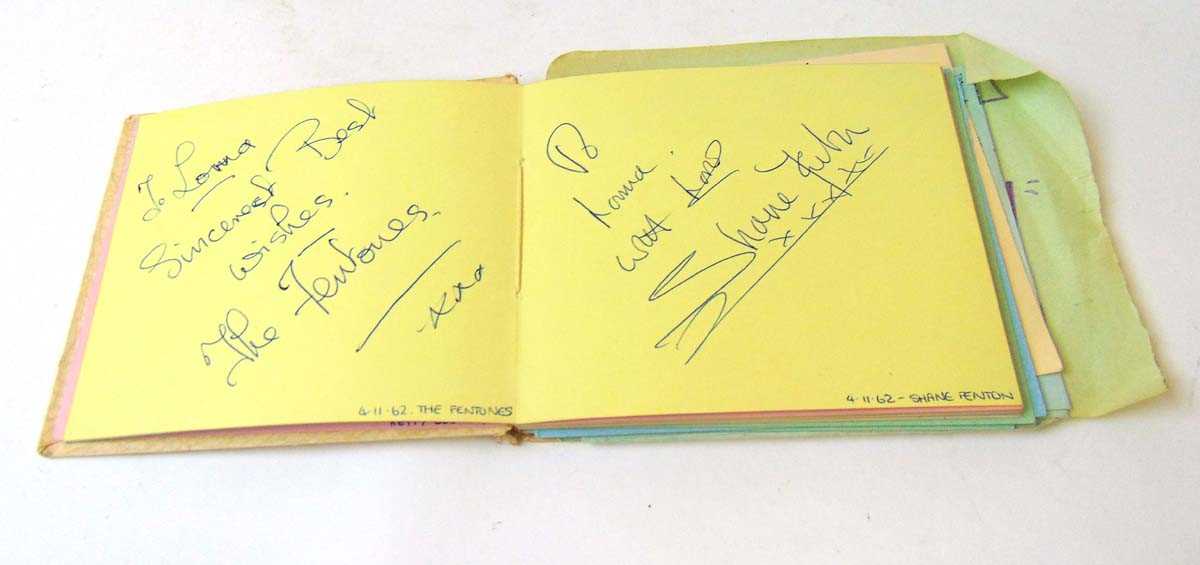 To Lorna
Sincerest Best
wishes.
The Fentones.
xxx
4·11·62. THE FENTONES
To
Lorna.
with Love
Shane Fenton
xxxxx
4·11·62 - SHANE FENTON